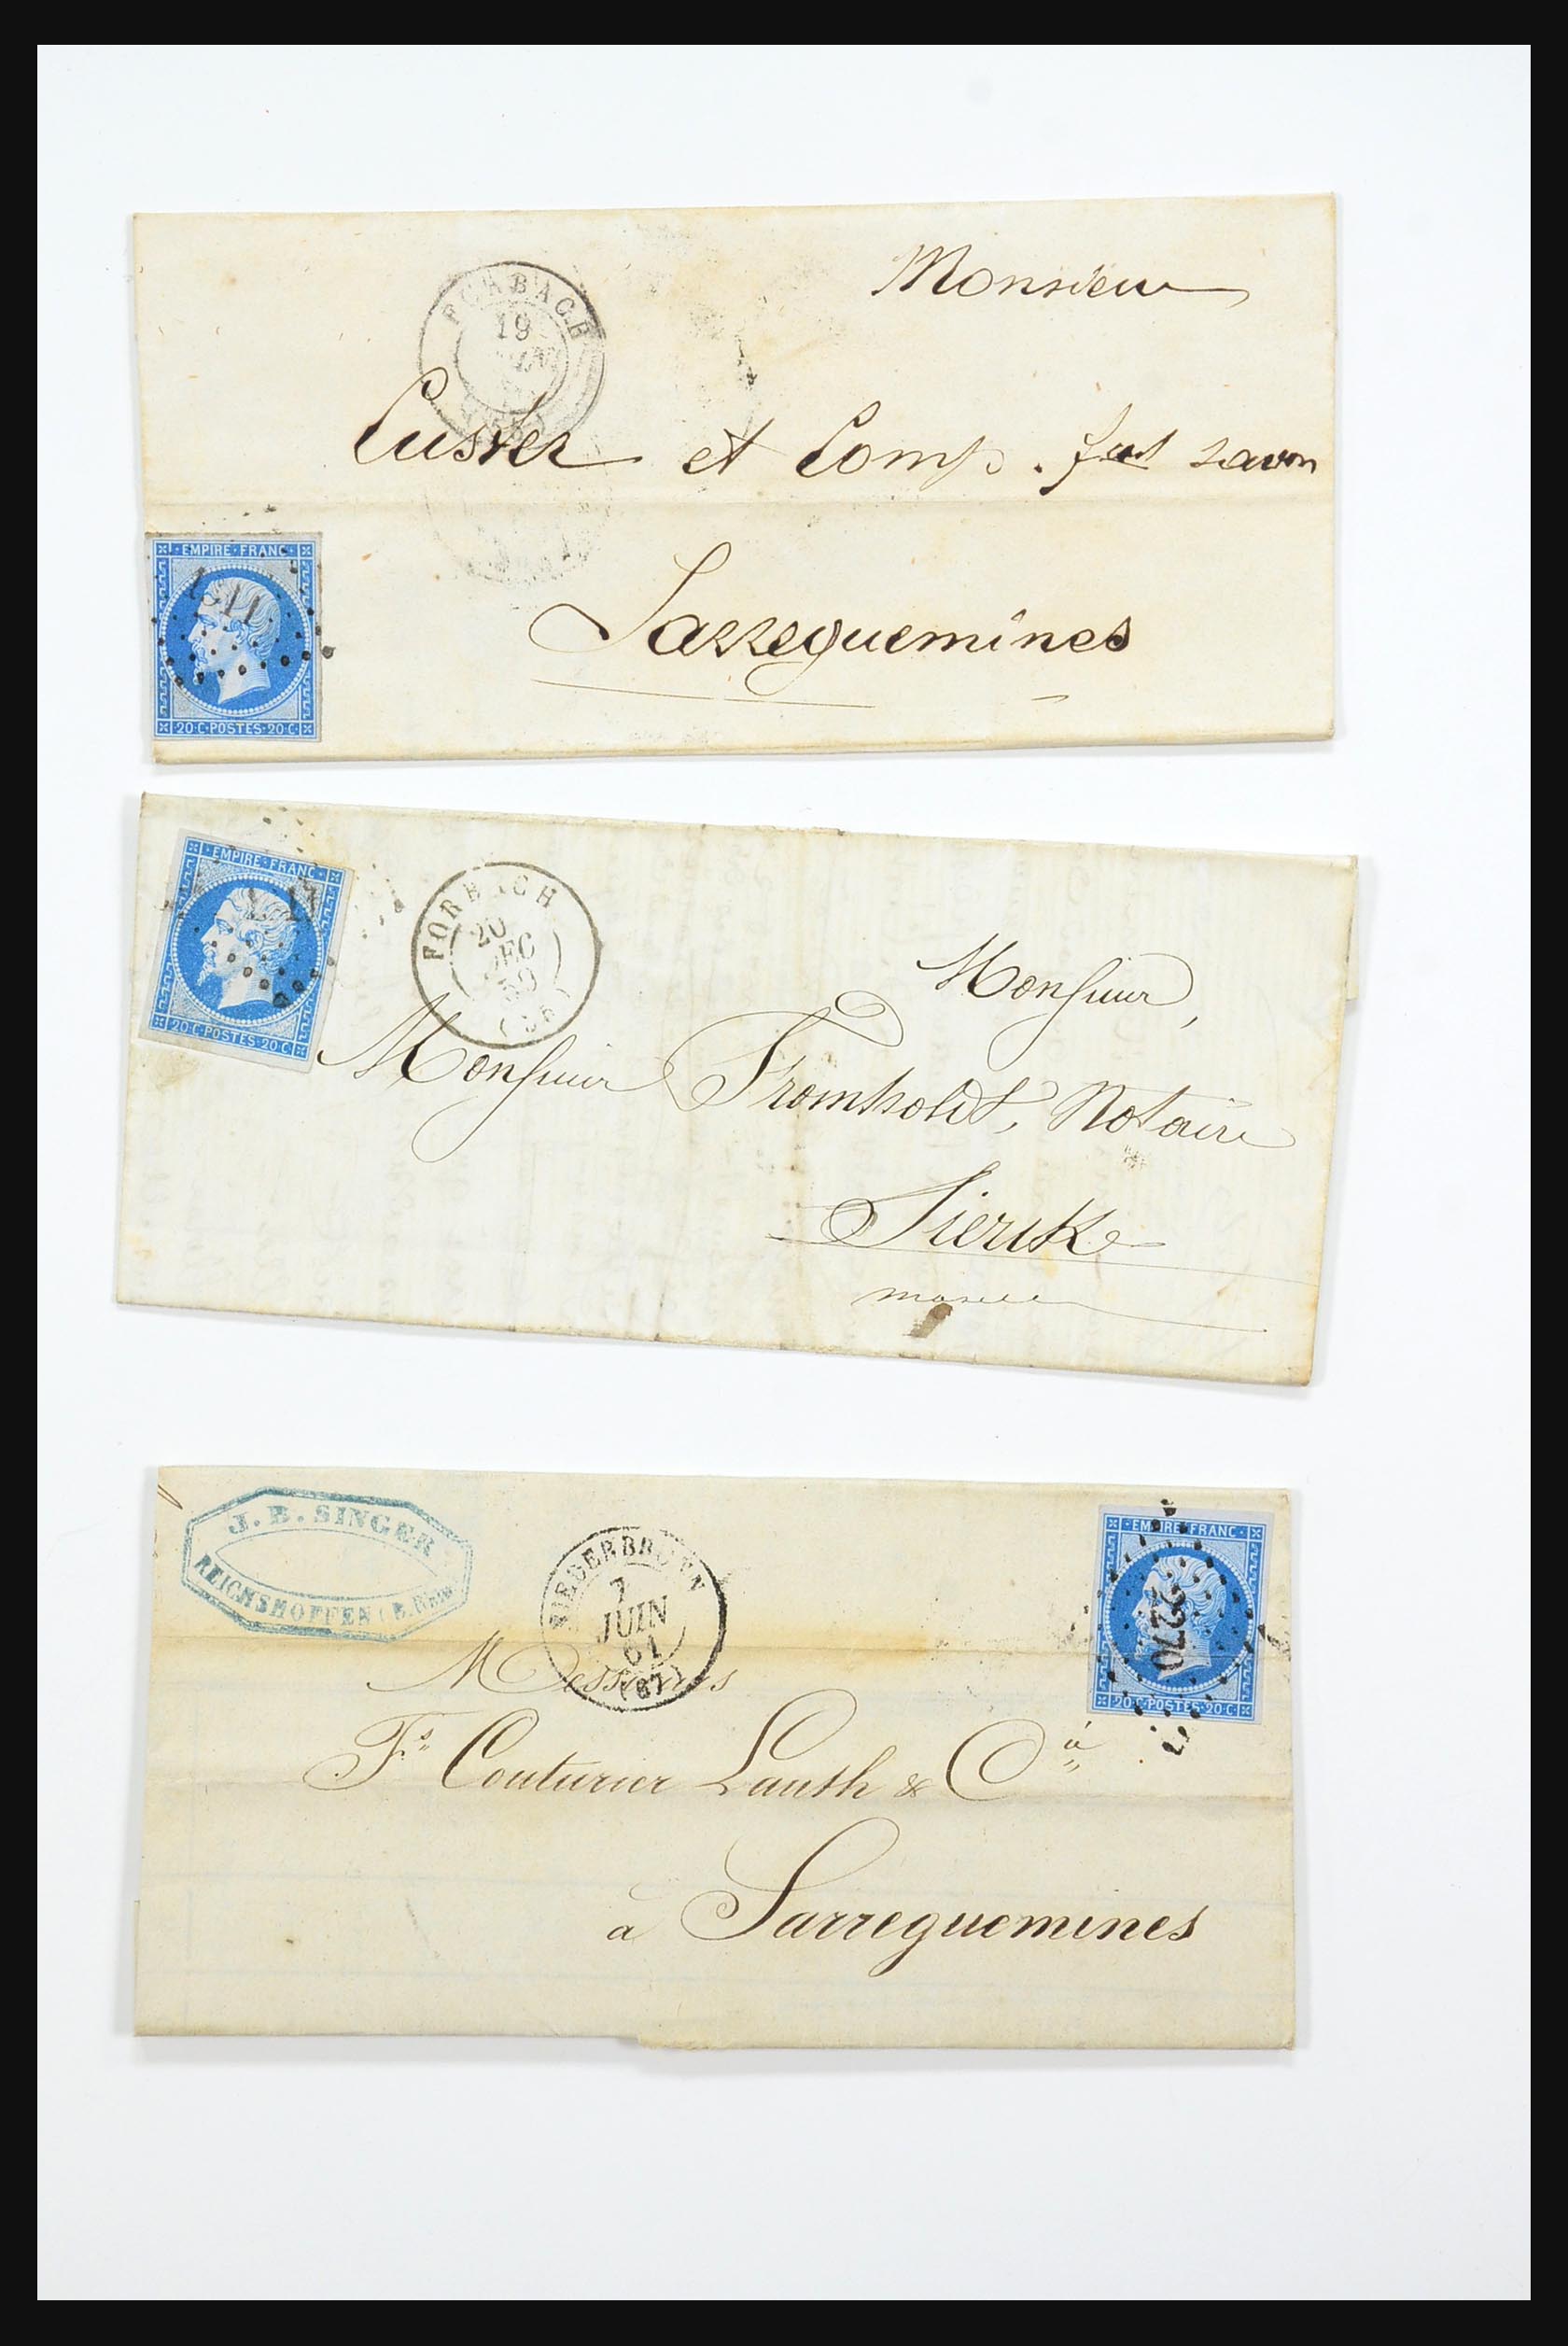 Monsieur
FORBACH
19
Custer et Comp. fabt savon
Sarreguemines
EMPIRE·FRANC·
20·C·POSTES·20·C·
EMPIRE·FRANC·
20·C·POSTES·20·C·
FORBACH
20
DEC
59
Monsieur,
Monsieur Fromholdt, Notaire
Sierck
J. B. SINGER
REICHSHOFFEN (B. Rhin)
NIEDERBRONN
7
JUIN
61
(67)
EMPIRE·FRANC·
2270
20·C·POSTES·20·C·
Messieurs
Fs. Couturier Lauth & Cie
à Sarreguemines